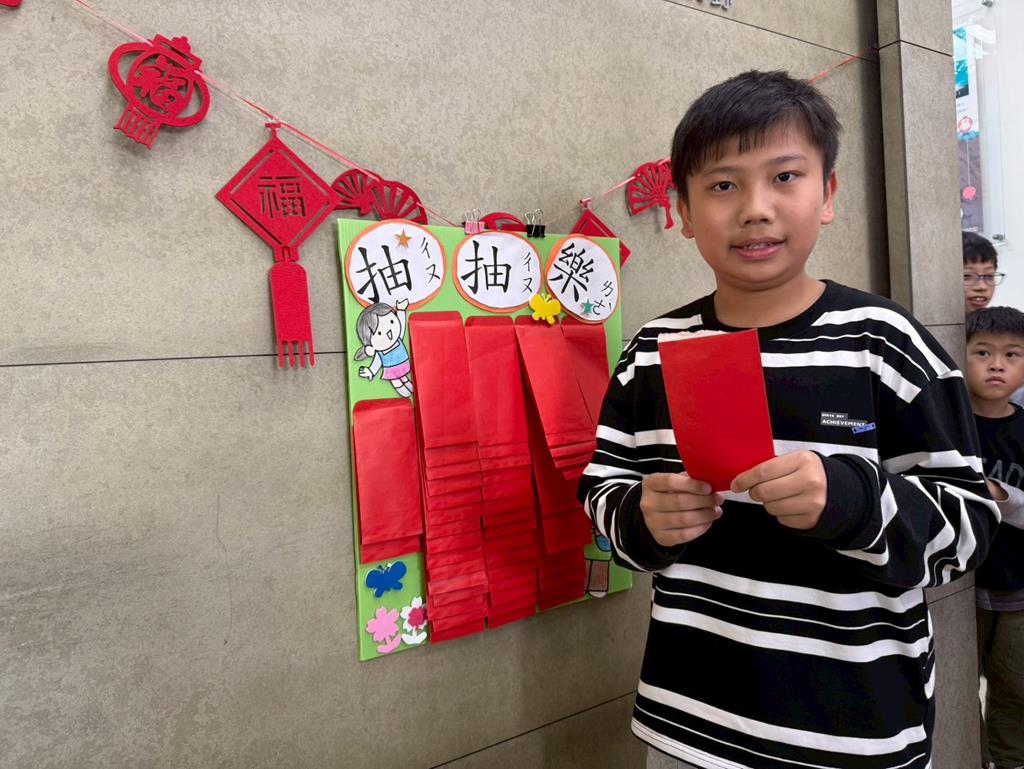 福
福
抽 ㄔㄡ
抽 ㄔㄡ
樂 ㄌㄜˋ
ACHIEVEMENT